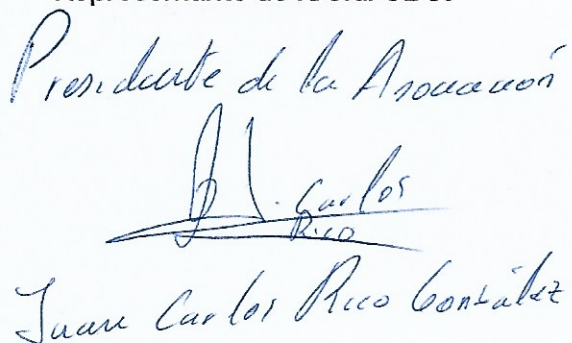 Presidente de la Asociación
J. Carlos
Rico
Juan Carlos Rico González